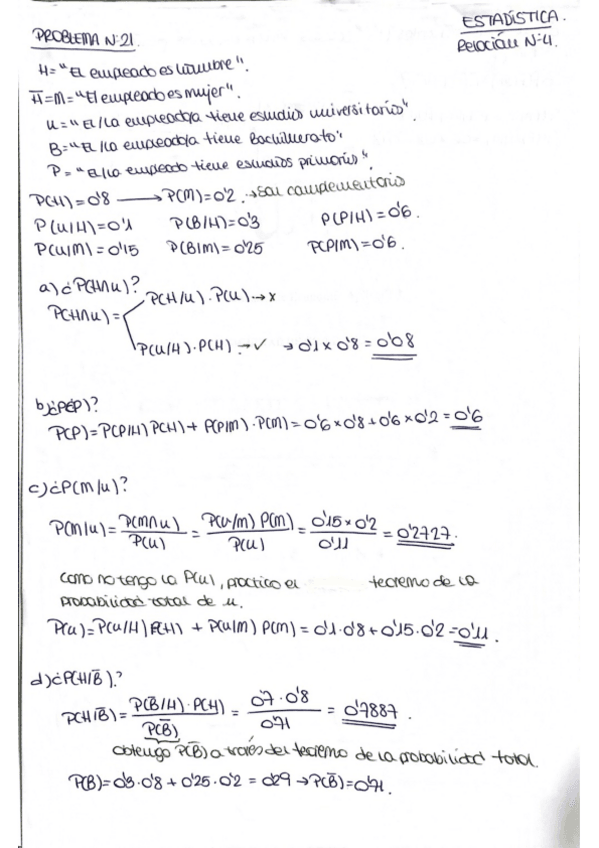 ESTADÍSTICA.
PROBLEMA Nº21.
Relación Nº4.
H = "El empleado es hombre".
H̅=M="El empleado es mujer".
U = "El/la empleado/a tiene estudios universitarios".
B="El/la empleado/a tiene Bachillerato"
P = "El/la empleado tiene estudios primarios".
P(H)=0'8 → P(M)=0'2. → Son complementario
P(U/H)=0'1 P(B/H)=0'3 P(P/H)=0'6.
P(U/M)=0'15 P(B/M)=0'25 P(P/M)=0'6.
a) ¿P(H∩U)?
P(H/U)·P(U) → x
P(H∩U)=
P(U/H)·P(H) → ✓ → 0'1 x 0'8 = 0'08
b) ¿P(P)?
P(P)=P(P/H)P(H)+ P(P/M)·P(M)=0'6 x 0'8 + 0'6 x 0'2 = 0'6
c) ¿P(M/U)?
P(M/U)= P(M∩U)/P(U) = P(U/M) P(M)/P(U) = 0'15 x 0'2/0'11 = 0'2727.
Como no tengo la P(U), practico el teorema de la
probabilidad total de U.
P(U)=P(U/H)P(H) + P(U/M) P(M)= 0'1·0'8 + 0'15·0'2 =0'11.
d) ¿P(H/B̅)?
P(H/B̅)= P(B̅/H)·P(H)/P(B̅) = 0'7·0'8/0'71 = 0'7887.
obtengo P(B̅) a través del teorema de la probabilidad total.
P(B)=0'3·0'8 + 0'25·0'2 = 0'29 → P(B̅)=0'71.